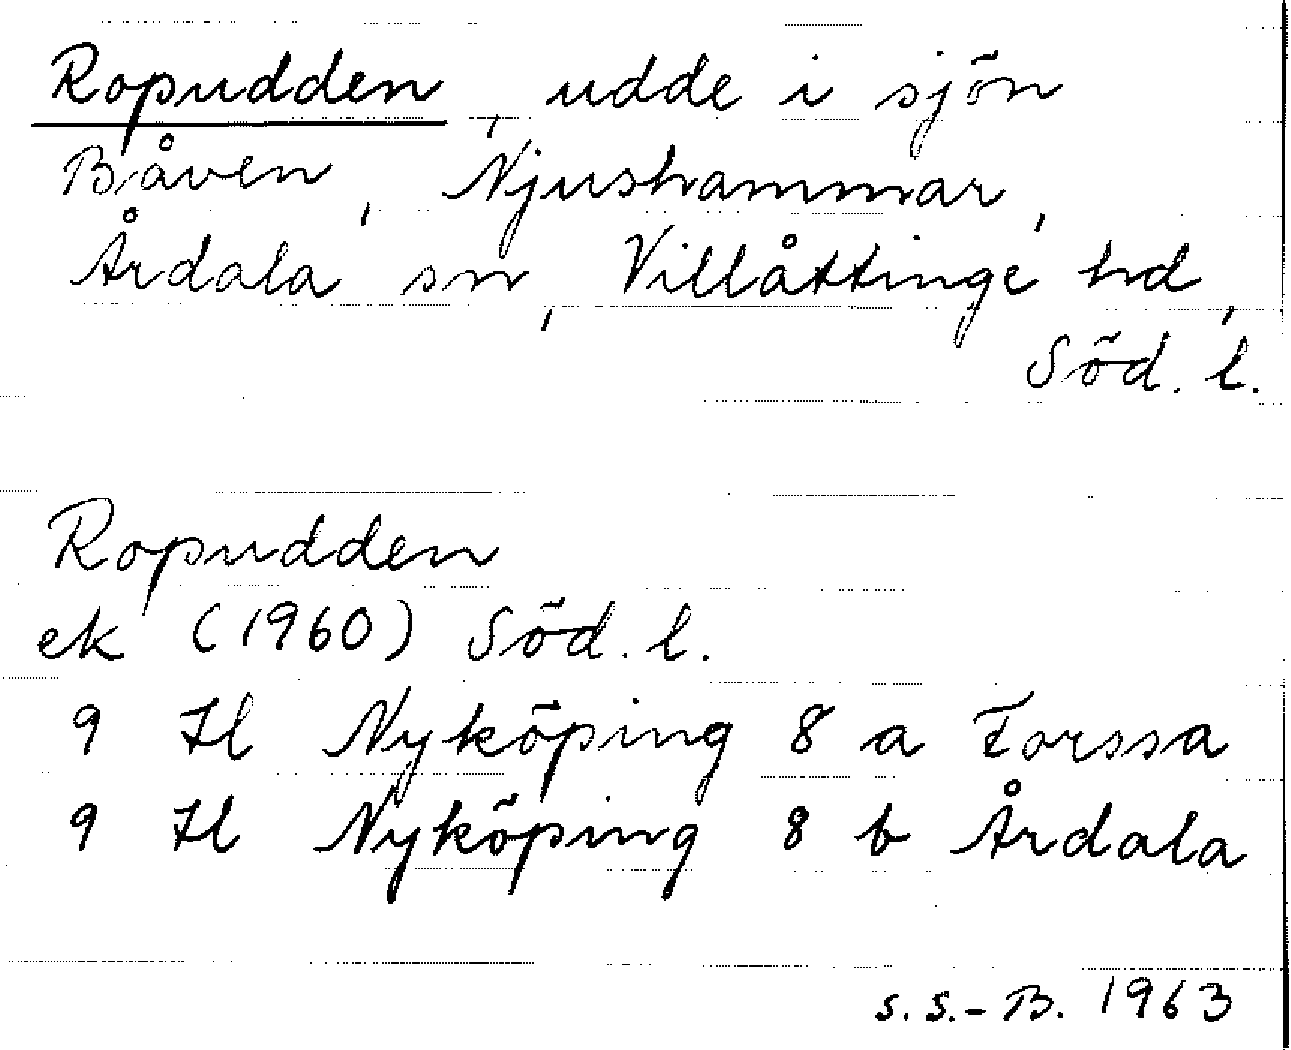 Ropudden, udde i sjön
Båven, Njushammar,
Årdala sn, Villåttinge hd,
Söd. l.
Ropudden
ek (1960) Söd. l.
9 Hl Nyköping 8 a Forssa
9 Hl Nyköping 8 b Årdala
S. S.-B. 1963